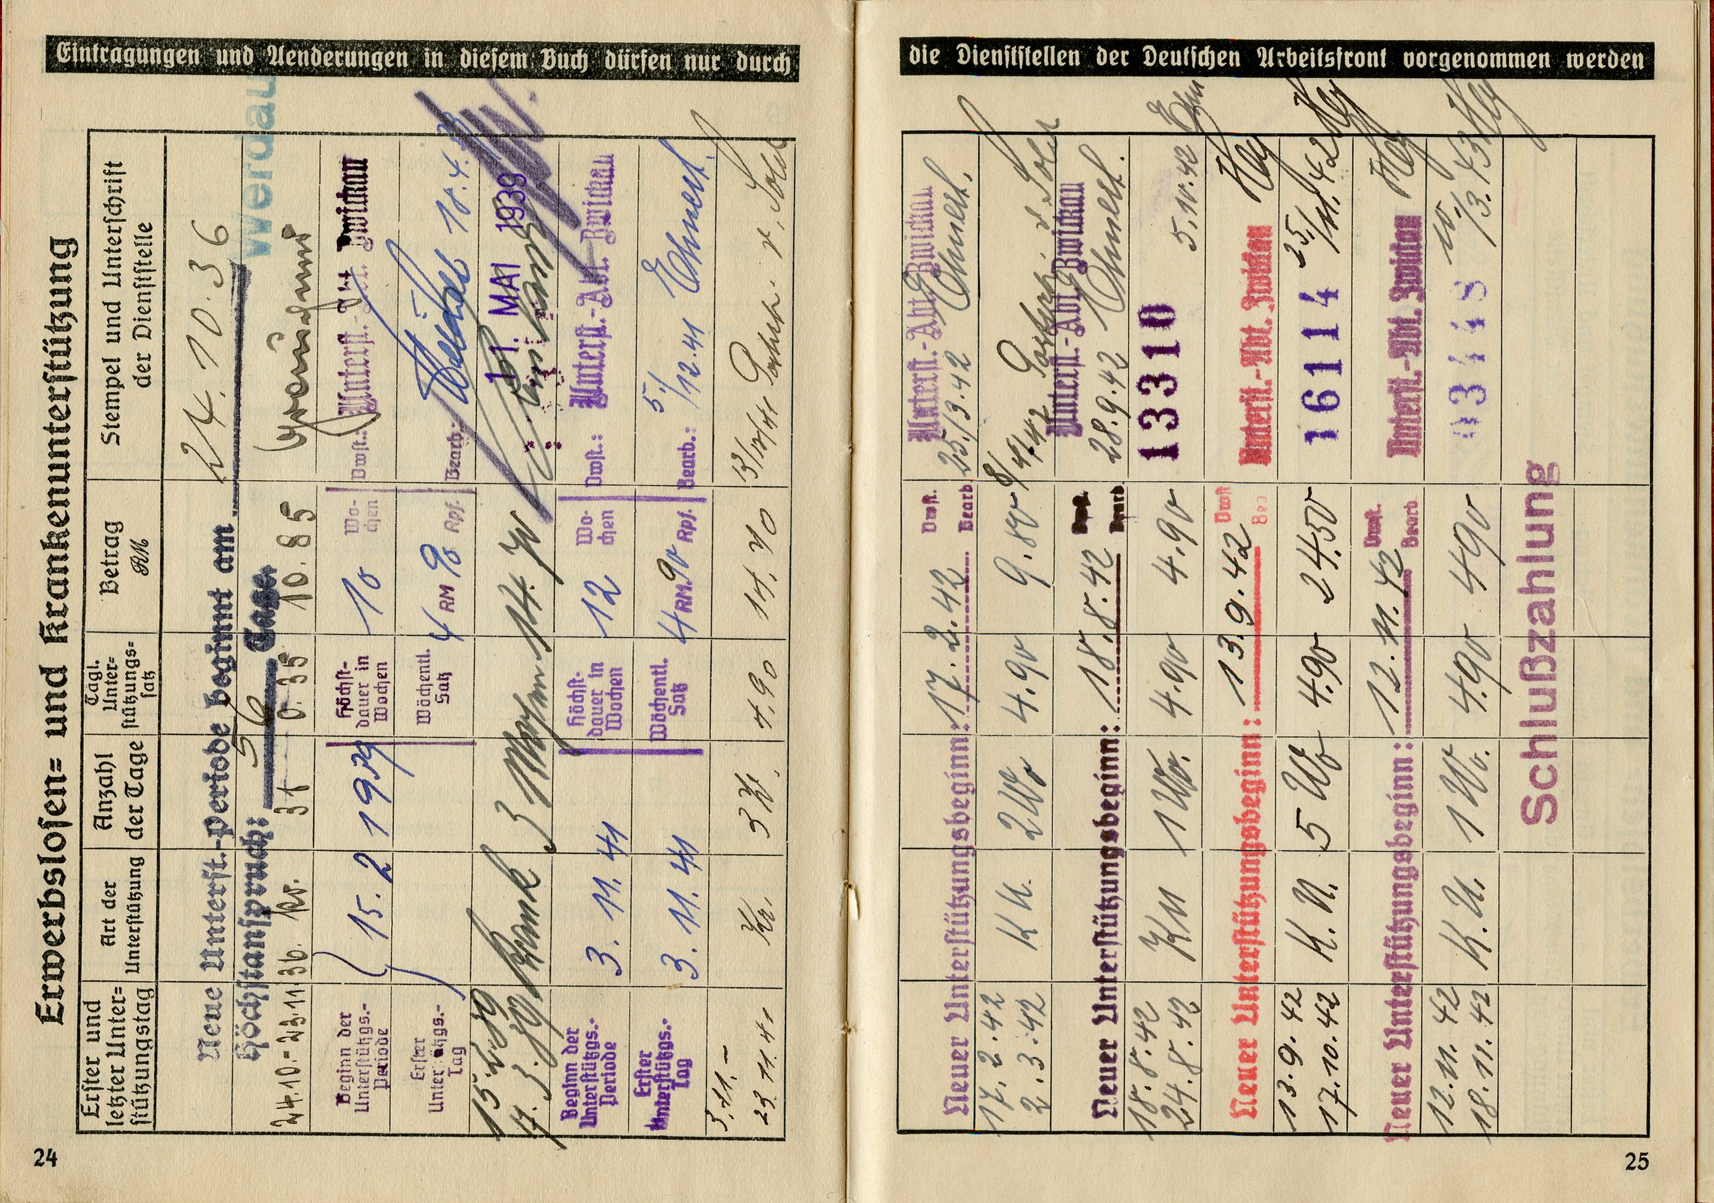 Eintragungen und Aenderungen in diesem Buch dürfen nur durch
die Dienststellen der Deutschen Arbeitsfront vorgenommen werden
Erwerbslosen= und Krankenunterstützung
Erster und letzter Unter=stützungstag
Art der Unterstützung
Anzahl der Tage
Tägl. Unter=stützungs=satz
Betrag RM
Stempel und Unterschrift der Dienststelle
Neue Unterst.-Periode beginnt am 24.10.36
Werdau
Höchstanspruch: 56 Tage
24.10.-23.11.36. Kr. 31 0.35 10.85
Beginn der Unterstützgs.-Periode
15. 2 1939
Höchst-dauer in Wochen
10
Wo-chen
Dwst.: Unterst.- Zwickau
Erster Unterstützgs.-Tag
Wöchentl. Satz
4 RM 90 Rpf.
Bearb.: 18.4.39
11. MAI 1939
krank 3 Wochen 14.70
Beginn der Unterstützgs.-Periode
3. 11. 41
Höchst-dauer in Wochen
12
Wo-chen
Dwst.: Unterst.-Abt. Zwickau
Erster Unterstützgs.-Tag
3. 11. 41
Wöchentl. Satz
4 RM 90 Rpf.
Bearb.: 5/12.41 Ehnert.
3.11.-
23.11.41 Kr. 3 W. 4,90 14,70
24
Neuer Unterstützungsbeginn: 17.2.42
Dwst. Unterst.-Abt. Zwickau
Bearb 25./3.42 Ehnert.
17.2.42
2.3.42 KU. 2 Wo 4.90 9.80
Neuer Unterstützungsbeginn: 18.8.42
Dwst. Unterst.-Abt. Zwickau
Bearb 28.9.42 Ehnert.
18.8.42
24.8.42 KU 1 Wo. 4.90 4.90
13310
5.10.42
Neuer Unterstützungsbeginn: 13.9.42
Dwst Unterst.-Abt. Zwickau
Bea
13.9.42
17.10.42 K.U. 5 Wo 4.90 24.50
16114
Neuer Unterstützungsbeginn: 12.11.42
Dwst. Unterst.-Abt. Zwickau
Bearb
12.11.42
18.11.42 K.U. 1 Wo. 4.90 4.90
03448
Schlußzahlung
25